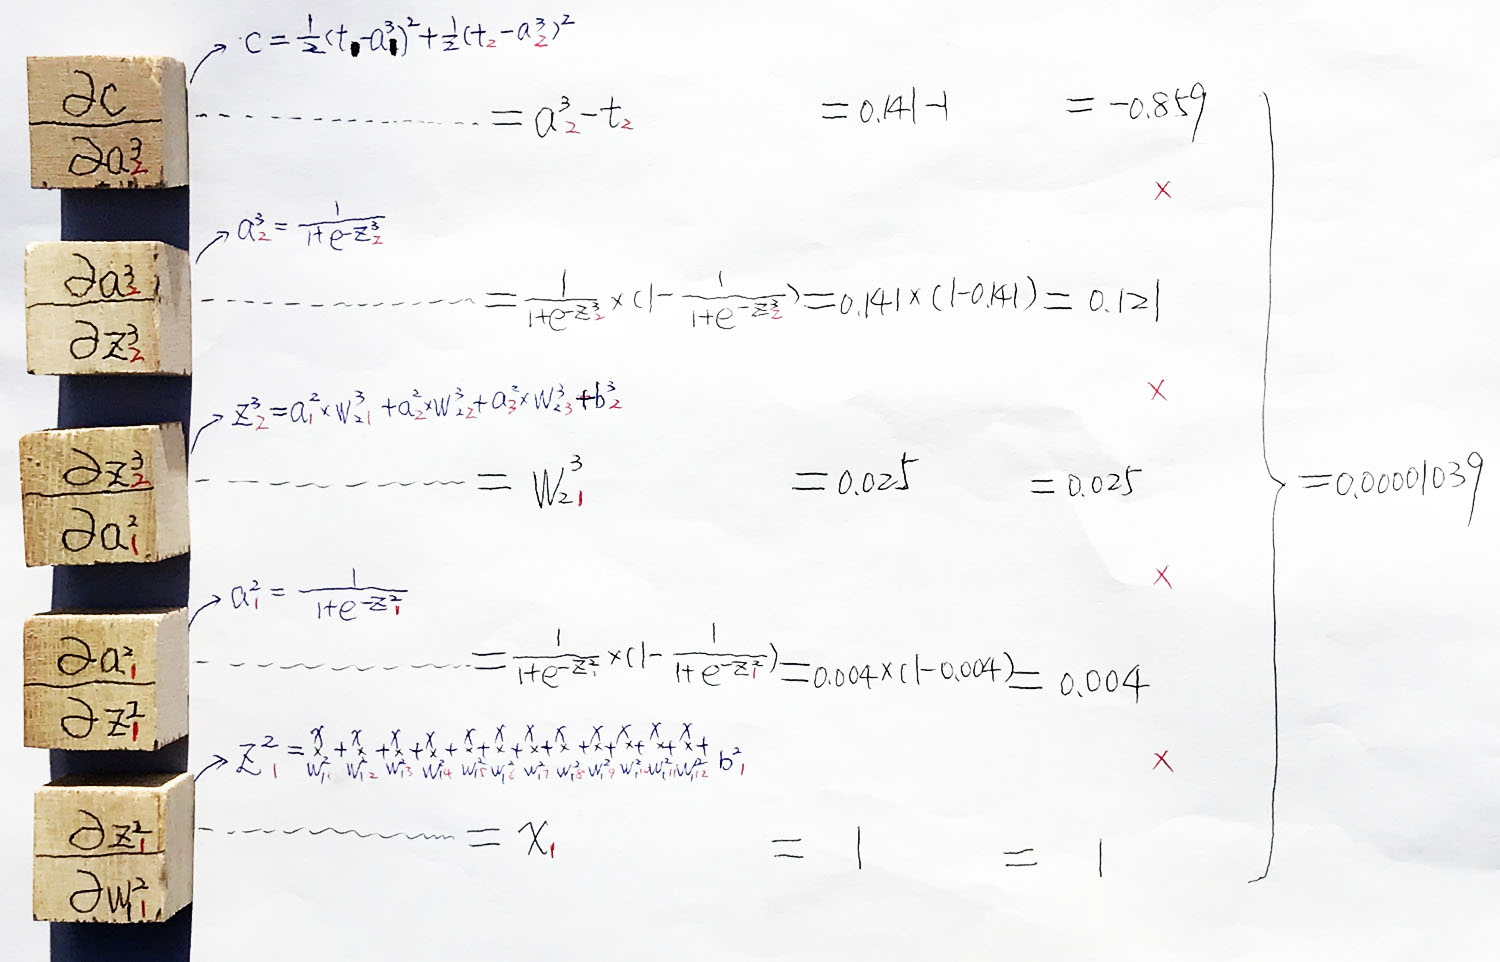 C = 1/2(t₁-a³₁)² + 1/2(t₂-a³₂)²
∂C/∂a³₂ = a³₂-t₂ = 0.141-1 = -0.859
×
a³₂ = 1/(1+e^-z³₂)
∂a³₂/∂z³₂ = 1/(1+e^-z³₂) × (1 - 1/(1+e^-z³₂)) = 0.141×(1-0.141) = 0.121
×
z³₂ = a²₁×w³₂₁ + a²₂×w³₂₂ + a²₃×w³₂₃ + b³₂
∂z³₂/∂a²₁ = w³₂₁ = 0.025 = 0.025
= 0.00001039
×
a²₁ = 1/(1+e^-z²₁)
∂a²₁/∂z²₁ = 1/(1+e^-z²₁) × (1 - 1/(1+e^-z²₁)) = 0.004×(1-0.004) = 0.004
×
z²₁ = x × w²₁ + x × w²₁₂ + x × w²₁₃ + x × w²₁₄ + x × w²₁₅ + x × w²₁₆ + x × w²₁₇ + x × w²₁₈ + x × w²₁₉ + x × w²₁ + x × w²₁₁₁ + x × w²₁₁₂ + b²₁
∂z²₁/∂w²₁ = x₁ = 1 = 1